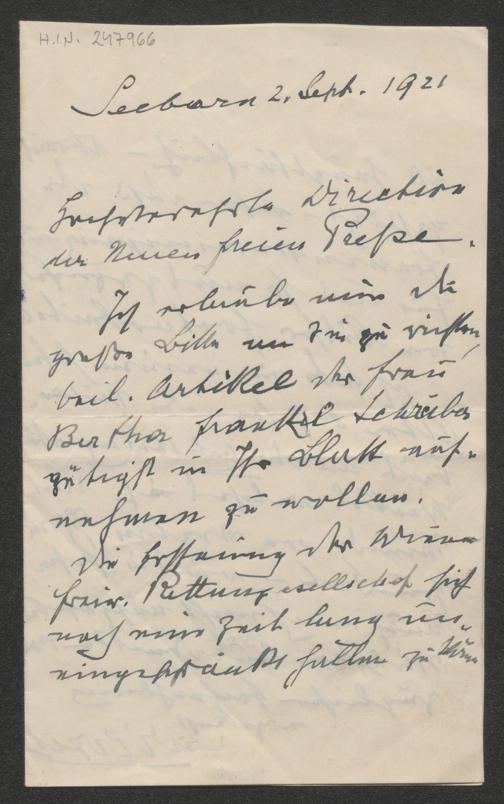 H.I.N. 247966
Seebarn 2. Sept. 1921
Hochverehrte Direction
der Neuen freien Preße.
Ich erlaube mir die
große Bitte an Sie zu richten,
beil. Artikel der Frau
Bertha Frankl Schreiber
gütigst in Ihr Blatt auf-
nehmen zu wollen.
Die der Wiener
freiw. Rettungsgesellschaft sich
noch eine Zeit lang un-
eingeschränkt halten zu können